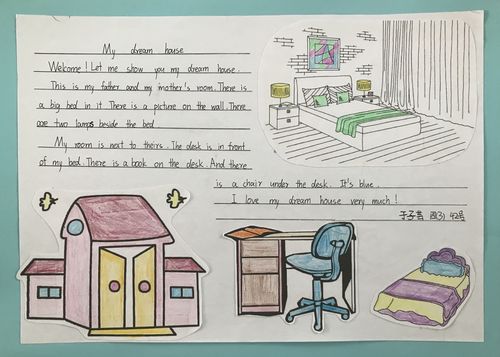 My dream house
Welcome! Let me show you my dream house.
This is my father and my mother's room. There is
a big bed in it. There is a picture on the wall. There
are two lamps beside the bed.
My room is next to theirs. The desk is in front
of my bed. There is a book on the desk. And there
is a chair under the desk. It's blue.
I love my dream house very much!
四(3) 42号